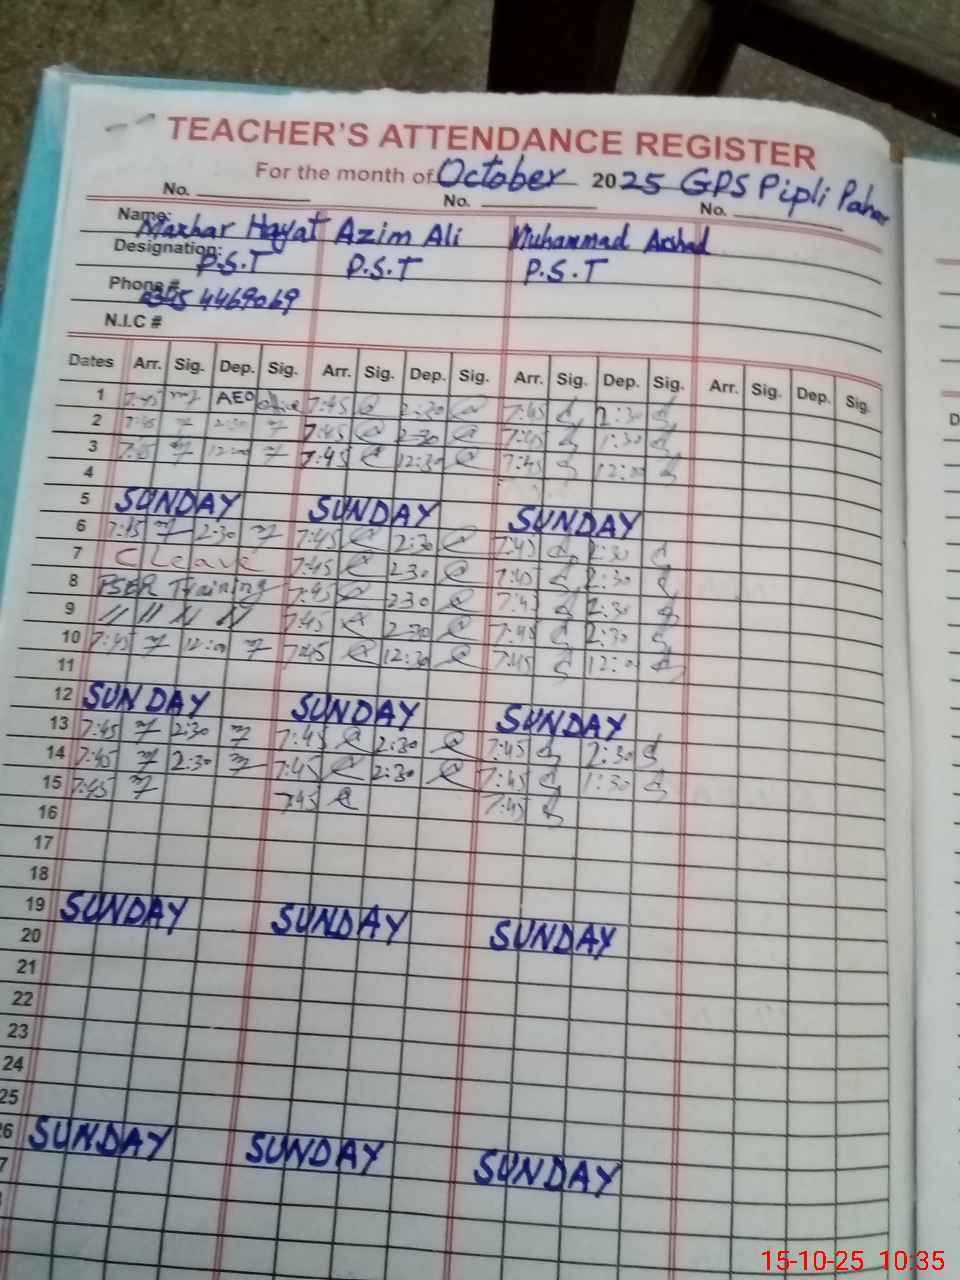 TEACHER'S ATTENDANCE REGISTER
For the month of October 2025 GPS Pipli Pahar
No. No. No.
Name: Mazhar Hayat Azim Ali Muhammad Arshad
Designation: P.S.T P.S.T P.S.T
Phone # 0345 4469069
N.I.C #
Dates Arr. Sig. Dep. Sig. Arr. Sig. Dep. Sig. Arr. Sig. Dep. Sig. Arr. Sig. Dep. Sig.
1 7:45 AEO office 7:45 2:30 7:45 2:30
2 7:45 2:30 7:45 2:30 7:45 1:30
3 7:45 12:00 7:45 12:30 7:45 12:00
4
5 SUNDAY SUNDAY SUNDAY
6 7:45 2:30 7:45 2:30 7:45 2:30
7 C Leave 7:45 2:30 7:45 2:30
8 PSER Training 7:45 2:30 7:45 2:30
9 // // // // 7:45 2:30 7:45 2:30
10 7:45 12:00 7:45 12:30 7:45 12:0
11
12 SUNDAY SUNDAY SUNDAY
13 7:45 2:30 7:45 2:30 7:45 2:30
14 7:45 2:30 7:45 2:30 7:45 1:30
15 7:45 7:45 7:45
16
17
18
19 SUNDAY SUNDAY SUNDAY
20
21
22
23
24
25
26 SUNDAY SUNDAY SUNDAY
7
D
15-10-25 10:35